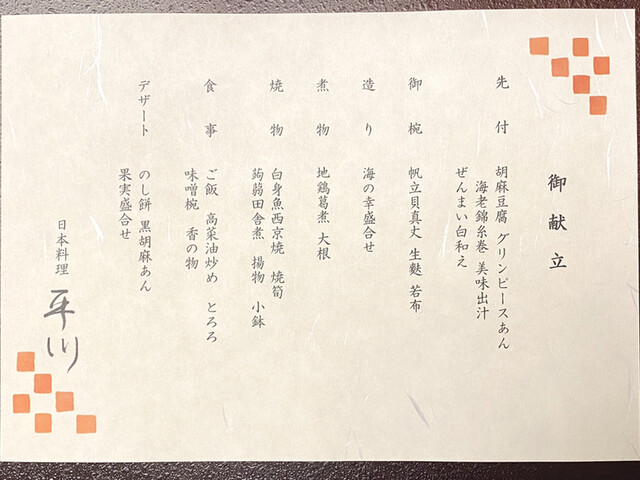 御献立
先付 胡麻豆腐 グリンピースあん
海老錦糸巻 美味出汁
ぜんまい白和え
御椀 帆立貝真丈 生麩 若布
造り 海の幸盛合せ
煮物 地鶏葛煮 大根
焼物 白身魚西京焼 焼筍
蒟蒻田舎煮 揚物 小鉢
食事 ご飯 高菜油炒め とろろ
味噌椀 香の物
デザート のし餅 黒胡麻あん
果実盛合せ
日本料理 平川